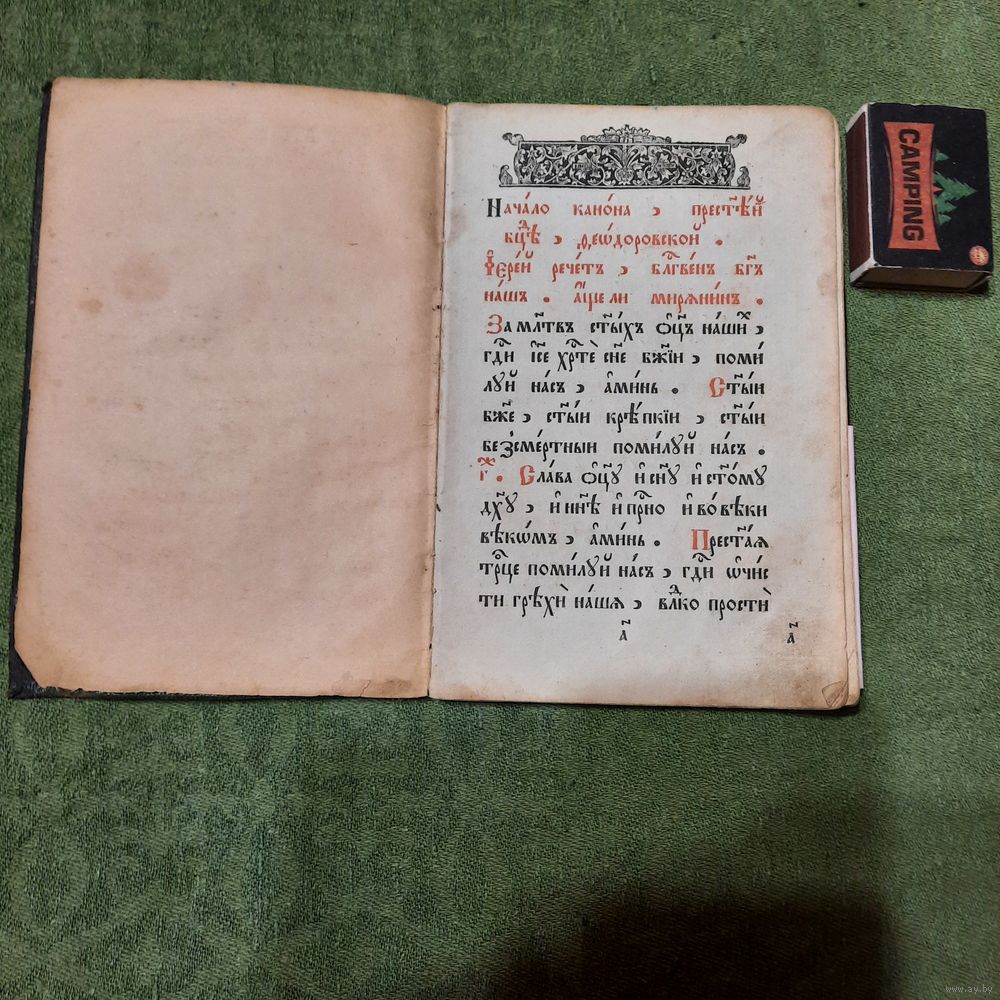 Нача́ло кано́на , прест҃ѣ́й
бц҃ѣ , ѳ̑еѡ́доровской .
І҆ере́й рече́тъ , блгⷭ҇ве́нъ бг҃ъ
на́шъ . а҆́ще ли мирѧни́нъ .
За мл҃твъ ст҃ы́хъ ѻ҆ц҃ъ на́шиⷯ ,
гдⷭ҇и і҆с҃е хрⷭ҇тѐ сн҃е бж҃і́и , поми́
луй на́съ , а҆ми́нь . Ст҃ы́и
бж҃е , ст҃ы́и крѣ́пкїи , ст҃ы́и
без̾сме́ртныи поми́луй на́съ .
г҃ⷤ . Сла́ва ѻ҆ц҃у̀ и҆ сн҃у и҆ ст҃о́му
дх҃у , и҆ нн҃ѣ и҆ прⷭ҇но и҆ во́ вѣки
вѣко́мъ , а҆ми́нь . Прест҃а́ѧ
трⷪ҇це поми́луй на́съ , гдⷭ҇и ѡ҆чи́с
ти грѣхѝ на́шѧ , влⷣко простѝ
а҃
а҃
CAMPING
www.ay.by